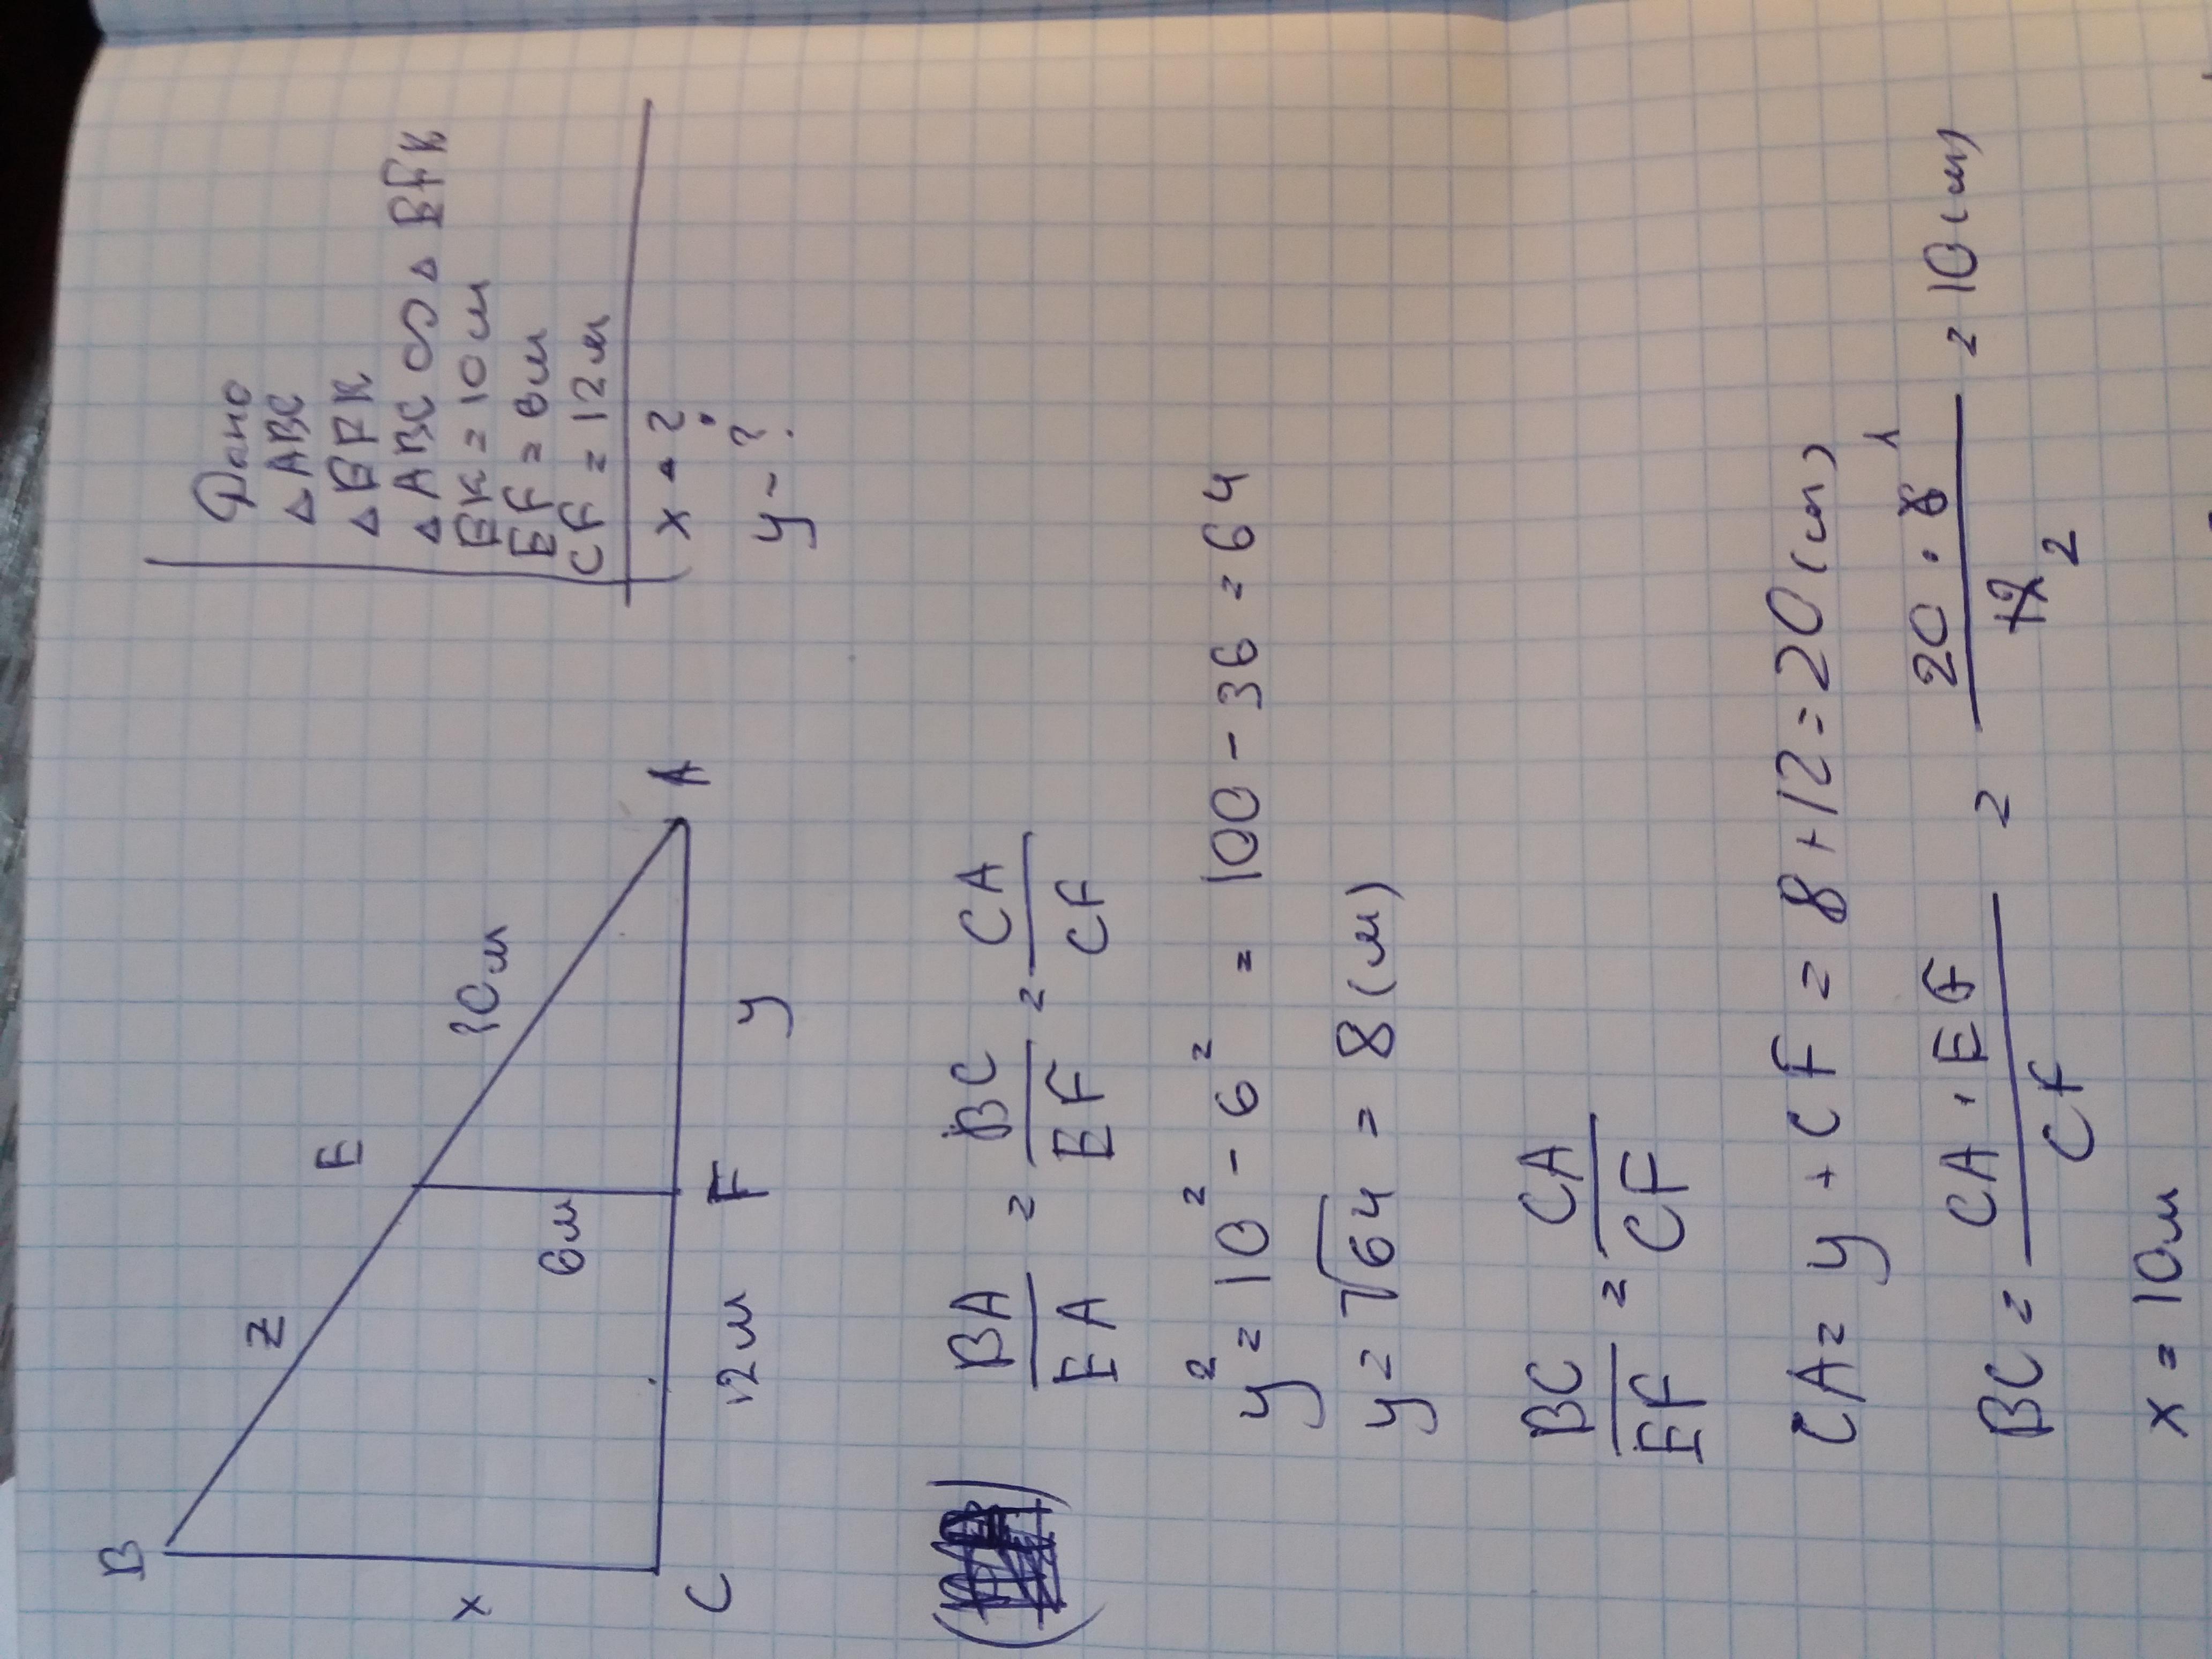 B
Z
E
10м
x
6м
A
C
12м
F
y
Дано
△ ABC
△ EFK
△ ABC ∞ △ EFK
EK = 10м
EF = 6м
CF = 12м
x - ?
y - ?
BA/EA = BC/EF = CA/CF
y² = 10² - 6² = 100 - 36 = 64
y = √64 = 8 (м)
BC/EF = CA/CF
CA = y + CF = 8 + 12 = 20 (м)
BC = CA · EF/CF = 20 · 6 1/12 2 = 10 (м)
x = 10м